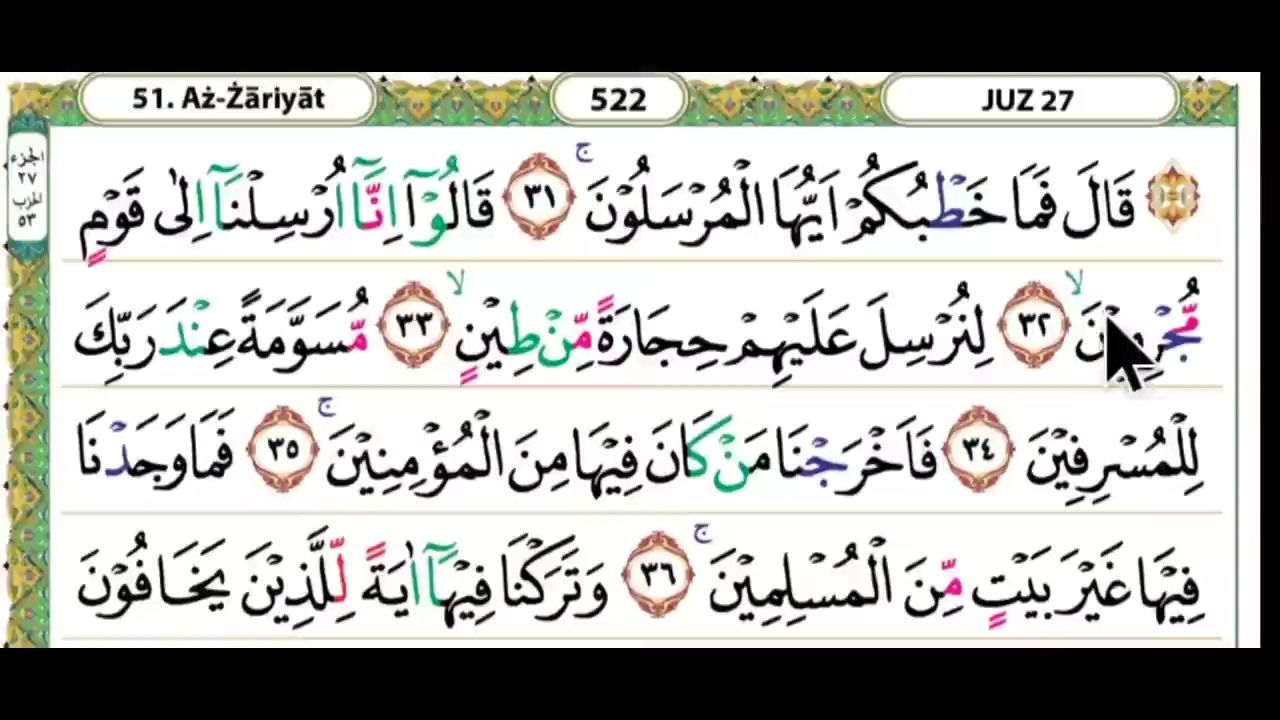 51. Aż-Żāriyāt
522
JUZ 27
الجزء
٢٧
الحزب
٥٣
۞ قَالَ فَمَا خَطْبُكُمْ اَيُّهَا الْمُرْسَلُوْنَ ۚ ٣١ قَالُوْٓا اِنَّآ اُرْسِلْنَآ اِلٰى قَوْمٍ
مُّجْرِمِيْنَ ۙ ٣٢ لِنُرْسِلَ عَلَيْهِمْ حِجَارَةً مِّنْ طِيْنٍ ۙ ٣٣ مُّسَوَّمَةً عِنْدَ رَبِّكَ
لِلْمُسْرِفِيْنَ ٣٤ فَاَخْرَجْنَا مَنْ كَانَ فِيْهَا مِنَ الْمُؤْمِنِيْنَ ۚ ٣٥ فَمَا وَجَدْنَا
فِيْهَا غَيْرَ بَيْتٍ مِّنَ الْمُسْلِمِيْنَ ۚ ٣٦ وَتَرَكْنَا فِيْهَآ اٰيَةً لِّلَّذِيْنَ يَخَافُوْنَ